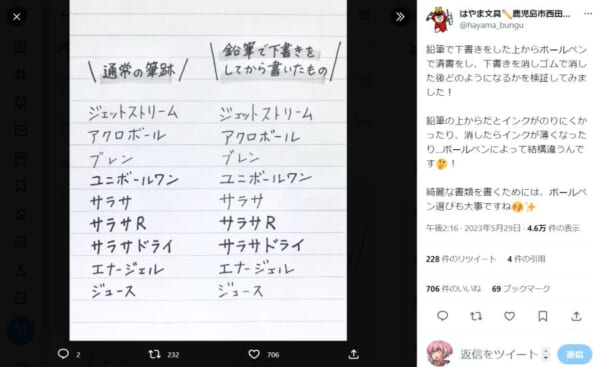 通常の筆跡
鉛筆で下書きを
してから書いたもの
ジェットストリーム ジェットストリーム
アクロボール アクロボール
ブレン ブレン
ユニボールワン ユニボールワン
サラサ サラサ
サラサR サラサR
サラサドライ サラサドライ
エナージェル エナージェル
ジュース ジュース
2 232 706
はやま文具✏️鹿児島市西田...
@hayama_bungu
鉛筆で下書きをした上からボールペン
で清書をし、下書きを消しゴムで消し
た後どのようになるかを検証してみま
した！
鉛筆の上からだとインクがのりにくか
ったり、消したらインクが薄くなった
り...ボールペンによって結構違うんで
す🤔！
綺麗な書類を書くためには、ボールペ
ン選びも大事ですね😚✨
午後2:16 · 2023年5月29日 · 4.6万 件の表示
228 件のリツイート 4 件の引用
706 件のいいね 69 ブックマーク
返信をツイート
返信